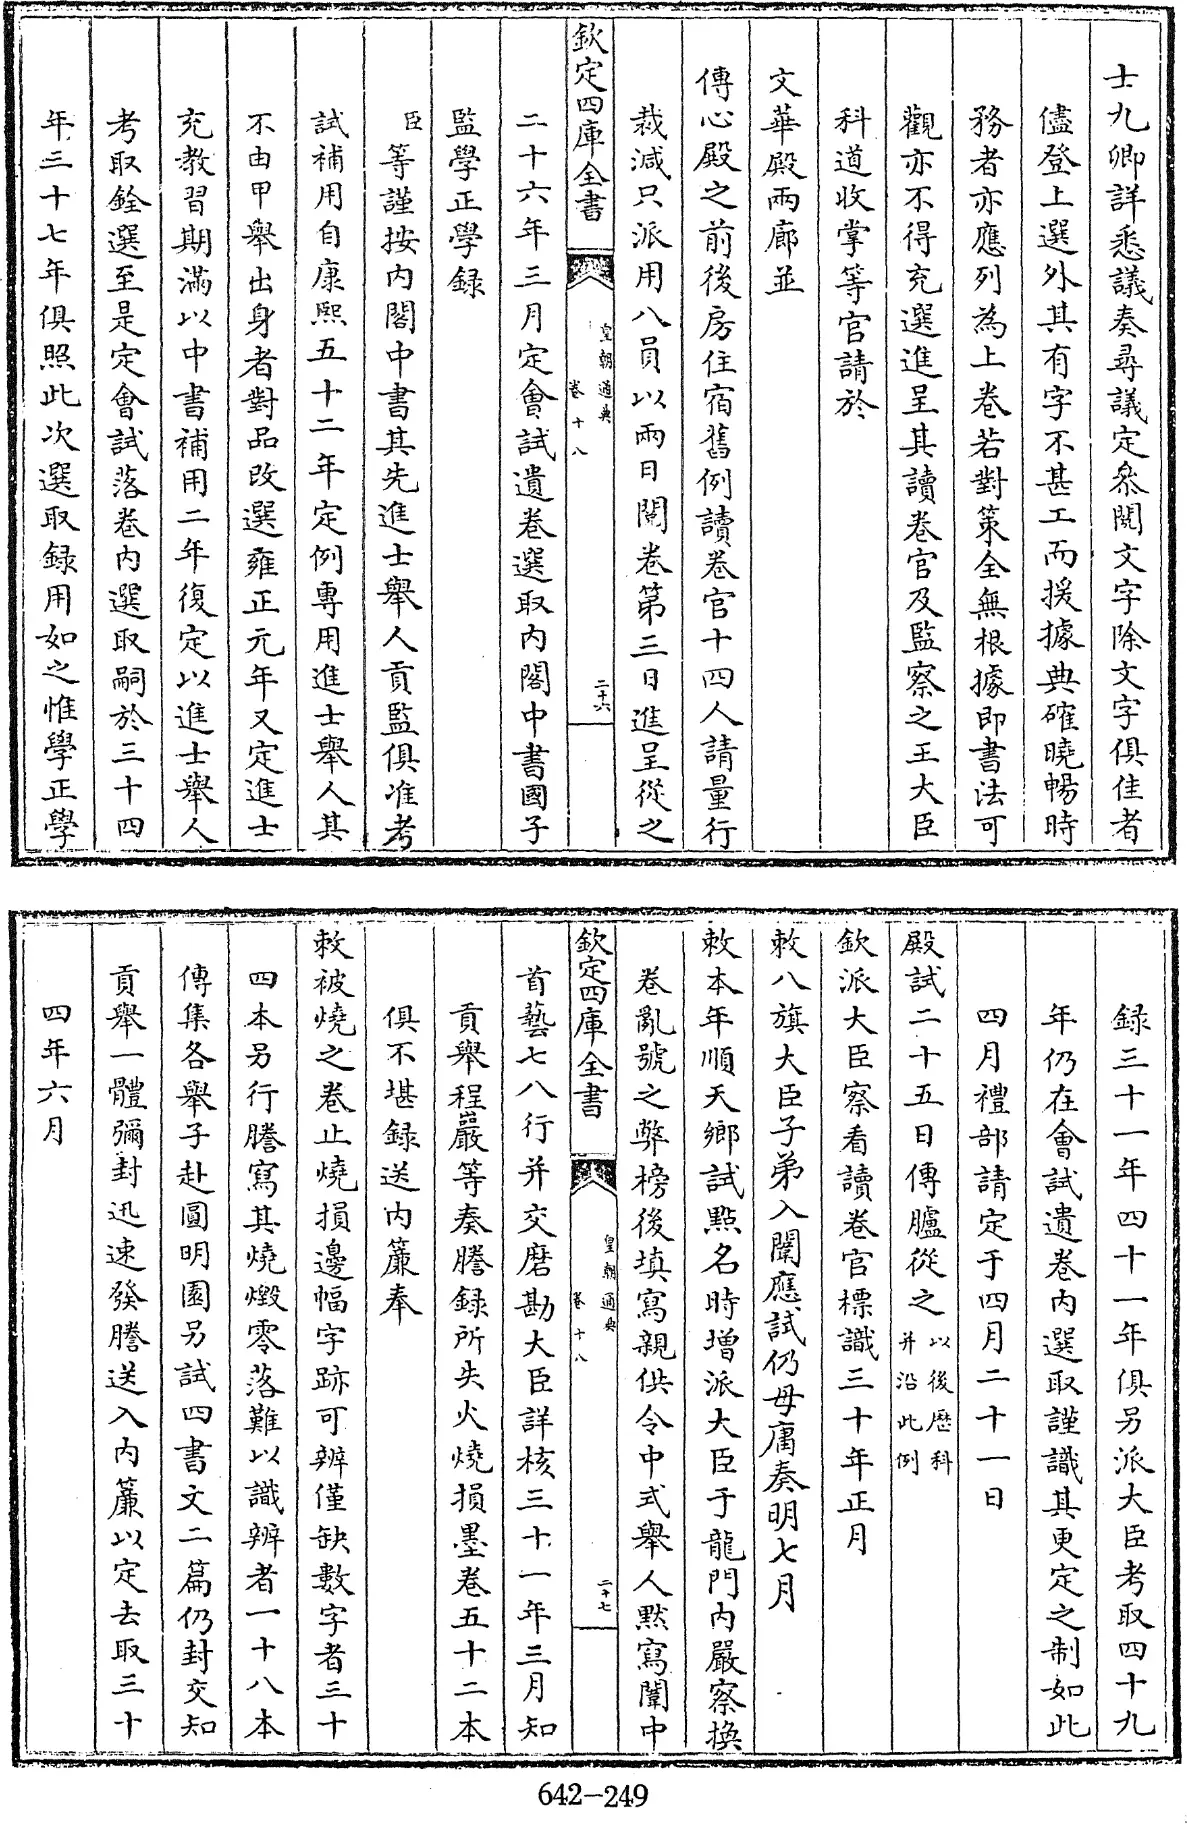 士九卿詳悉議奏尋議定叅閱文字除文字俱佳者
儘登上選外其有字不甚工而援據典確曉暢時
務者亦應列為上卷若對策全無根據即書法可
觀亦不得充選進呈其讀卷官及監察之王大臣
科道收掌等官請於
文華殿兩廊並
傳心殿之前後房住宿舊例讀卷官十四人請量行
裁減只派用八員以兩日閱卷第三日進呈從之
欽定四庫全書
皇朝通典
卷十八
二十六
二十六年三月定會試遺卷選取內閣中書國子
監學正學録
臣等謹按內閣中書其先進士舉人貢監俱准考
試補用自康熙五十二年定例專用進士舉人其
不由甲舉出身者對品改選雍正元年又定進士
充教習期滿以中書補用二年復定以進士舉人
考取銓選至是定會試落卷內選取嗣於三十四
年三十七年俱照此次選取録用如之惟學正學
録三十一年四十一年俱另派大臣考取四十九
年仍在會試遺卷內選取謹識其更定之制如此
四月禮部請定于四月二十一日
殿試二十五日傳臚從之以後歴科
并沿此例
欽派大臣察看讀卷官標識三十年正月
敕八旗大臣子弟入闈應試仍毋庸奏明七月
敕本年順天鄉試點名時增派大臣于龍門內嚴察換
卷亂號之弊榜後填寫親供令中式舉人默寫闈中
欽定四庫全書
皇朝通典
卷十八
二十七
首藝七八行并交磨勘大臣詳核三十一年三月知
貢舉程巖等奏謄録所失火燒損墨卷五十二本
俱不堪録送內簾奉
敕被燒之卷止燒損邊幅字跡可辨僅缺數字者三十
四本另行謄寫其燒燬零落難以識辨者一十八本
傳集各舉子赴圓明園另試四書文二篇仍封交知
貢舉一體彌封迅速發謄送入內簾以定去取三十
四年六月
642-249